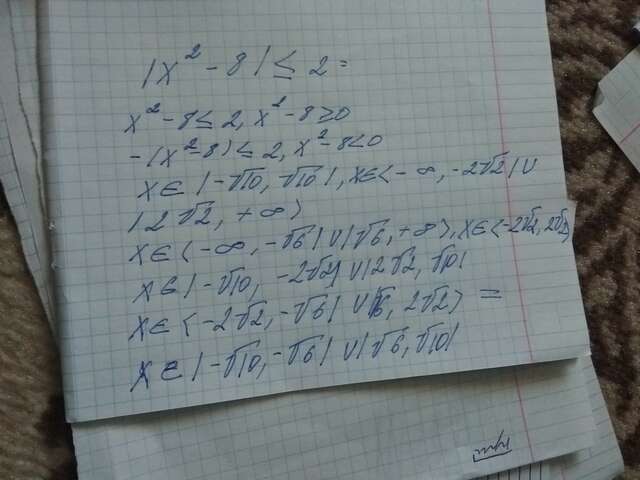 |x² - 8| ≤ 2 =
x² - 8 ≤ 2, x² - 8 ≥ 0
-(x² - 8) ≤ 2, x² - 8 < 0
x ∈ |-√10, √10|, x ∈ <-∞, -2√2| ∪
|2√2, +∞>
x ∈ <-∞, -√6| ∪ |√6, +∞>, x ∈ <-2√2, 2√2>
x ∈ |-√10, -2√2| ∪ |2√2, √10|
x ∈ <-2√2, -√6| ∪ |√6, 2√2> =
x ∈ |-√10, -√6| ∪ |√6, √10|